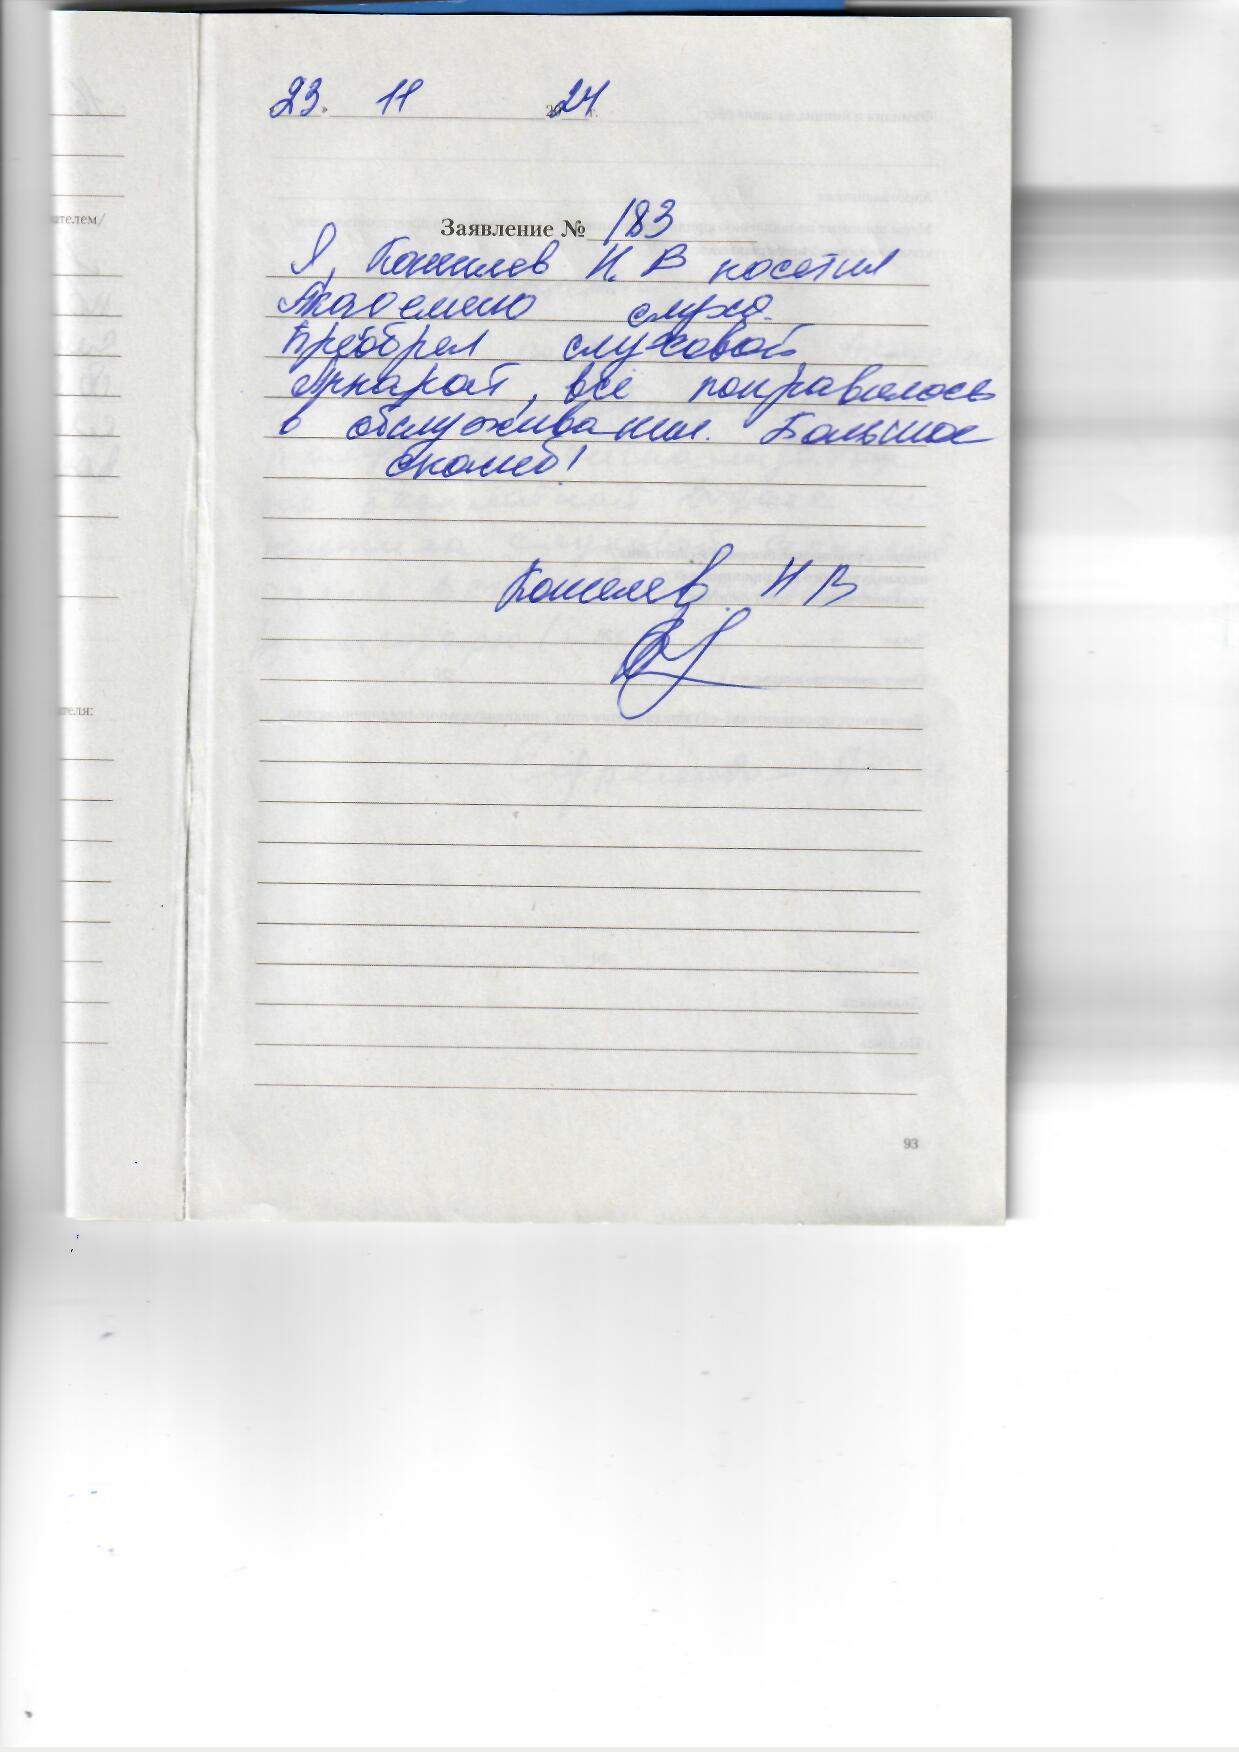 23. 11 2024 г.
Заявление № 183
Я, Кошелев Н. В посетил
Академию слуха.
Преобрел слуховой
Аппарат, все понравилось
в обслуживании. Большое
спасибо!
Кошелев Н В
ателем/
ателя:
93